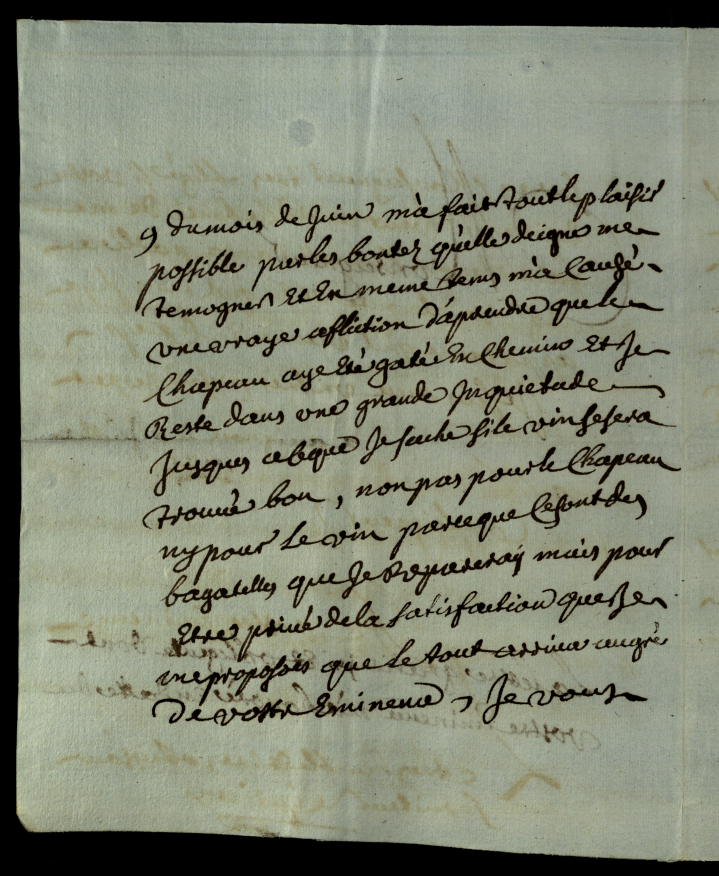 9 du mois de Juin m'a fait tout le plaisir
possible par les bontez qu'elle deigne me
temogner Et En meme tems m'a Causé
une vraye afliction d'aprendre que le
Chapeau aye Eté gaté En Chemin Et Je
Reste dans une grande Inquietude
Jusques a ce que Je sache si le vin se sera
trouvé bon, non pas pour le Chapeau
ny pour le vin parce que Ce sont des
bagatelles que Je Repareray mais pour
Etre privé de la satisfaction que Je
me proposois que le tout arriva au gré
de vostre Eminence, Je vous